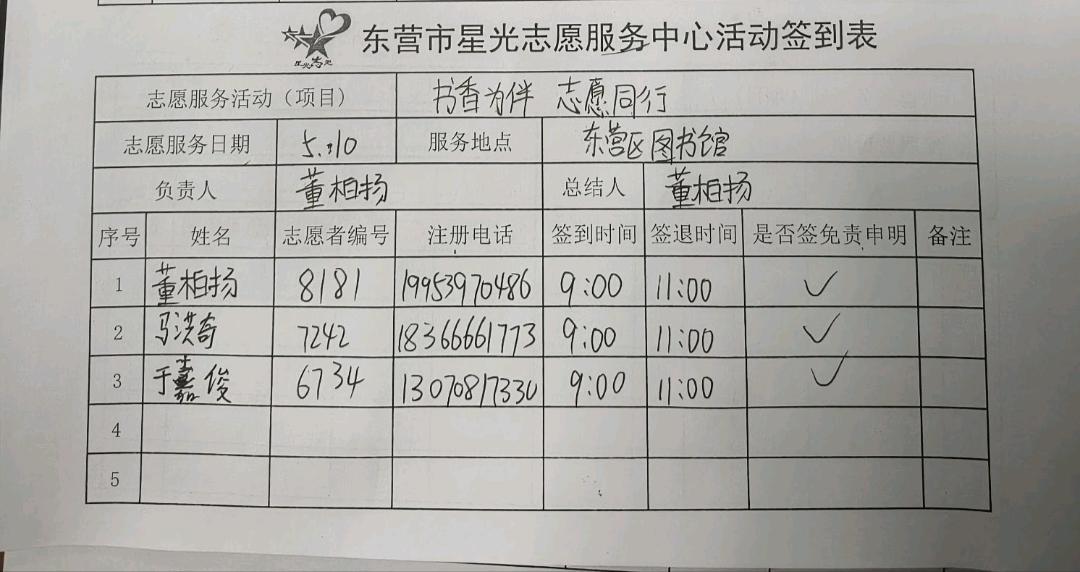 东营市星光志愿服务中心活动签到表
志愿服务活动（项目） 书香为伴 志愿同行
志愿服务日期 5.10 服务地点 东营区图书馆
负责人 董相扬 总结人 董相扬
序号 姓名 志愿者编号 注册电话 签到时间 签退时间 是否签免责申明 备注
1 董相扬 8181 19953970486 9:00 11:00 ✓
2 马洪奇 7242 18366661773 9:00 11:00 ✓
3 于嘉俊 6734 13070817330 9:00 11:00 ✓
4
5